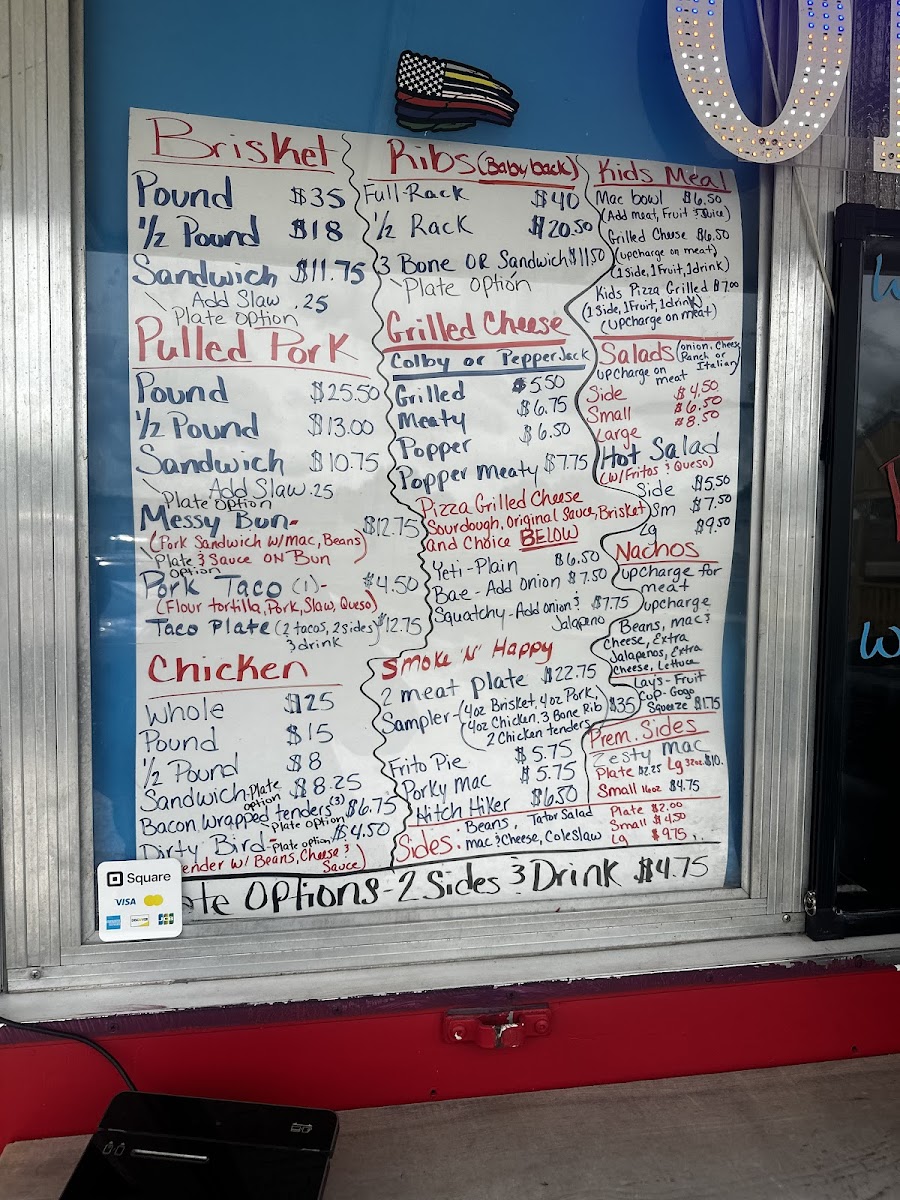 Brisket
Pound $35
1/2 Pound $18
Sandwich $11.75
Add Slaw .25
Plate Option
Pulled Pork
Pound $25.50
1/2 Pound $13.00
Sandwich $10.75
Add Slaw .25
Plate Option
Messy Bun- $12.75
(Pork Sandwich w/Mac, Beans)
Plate & Sauce ON Bun
Option
Pork Taco (1)- $4.50
(Flour tortilla, Pork, Slaw, Queso)
Taco Plate (2 tacos, 2 sides) $12.75
& drink
Chicken
Whole $25
Pound $15
1/2 Pound $8
Sandwich-Plate option $8.25
Bacon Wrapped tenders (3) $6.75
Plate option
Dirty Bird- Plate option $4.50
ender w/ Beans, Cheese &
Sauce)
Ribs (Baby back)
Full-Rack $40
1/2 Rack $20.50
3 Bone OR Sandwich $11.50
Plate Option
Grilled Cheese
Colby or Pepper Jack
Grilled $5.50
Meaty $6.75
Popper $6.50
Popper Meaty $7.75
Pizza Grilled Cheese
Sourdough, Original Sauce, Brisket
and Choice BELOW
Yeti-Plain $6.50
Bae-Add Onion $7.50
Squatchy-Add onion & $7.75
Jalapeno
Smoke 'N' Happy
2 meat plate $22.75
Sampler-(4oz Brisket, 4oz Pork, $35
4oz Chicken, 3 Bone Rib)
2 Chicken tenders
Frito Pie $5.75
Porky Mac $5.75
Hitch Hiker $6.50
Sides: Beans Tator Salad
Mac & Cheese, Coleslaw
Plate $2.00
Small $4.50
Lg $9.75
Kids Meal
Mac bowl $6.50
(Add meat, Fruit & Juice)
Grilled Cheese $6.50
(upcharge on meat)
(1 Side, 1 Fruit, 1 drink)
Kids Pizza Grilled $7.00
(1 Side, 1 Fruit, 1 drink)
(upcharge on meat)
Salads (onion, Cheese
Ranch or
Italian)
upcharge on
meat
Side $4.50
Small $6.50
Large $8.50
Hot Salad
(w/Fritos & Queso)
Side $5.50
Sm $7.50
Lg $9.50
Nachos
upcharge for
meat
upcharge
Beans, mac &
Cheese, Extra
Jalapenos, Extra
Cheese, Lettuce
Lay's - Fruit
Cup - Gogo
Squeeze $1.75
Prem. Sides
Zesty Mac
Plate $2.25 Lg 32oz. $10.
Small 16oz $4.75
te Options-2 Sides & Drink $4.75
Square
VISA